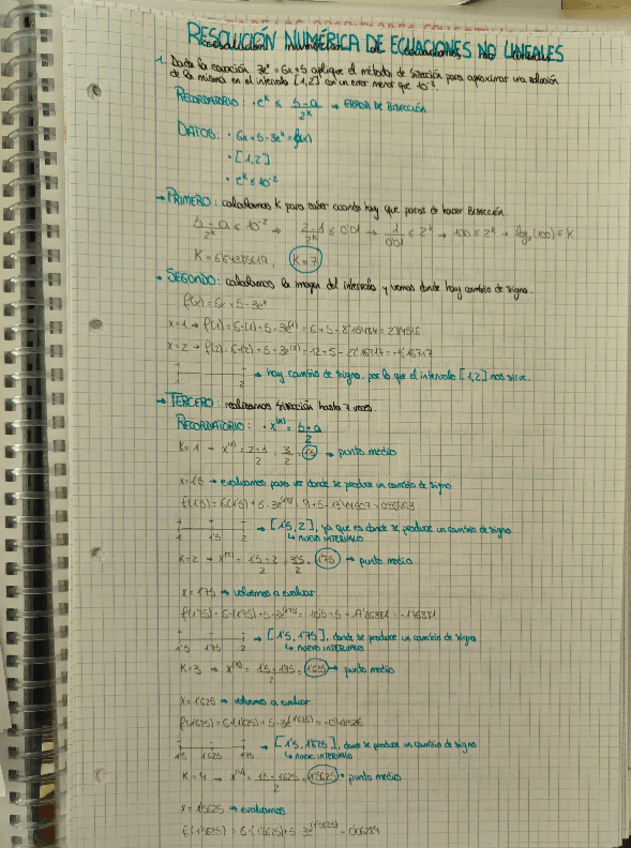 RESOLUCIÓN NUMÉRICA DE ECUACIONES NO LINEALES
1. Dada la ecuación 3eˣ = 6x+5 aplique el método de bisección para aproximar una solución
de la misma en el intervalo [1,2] con un error menor que 10⁻².
RECORDATORIO: · eᵏ ≤ b-a/2ᵏ → ERROR DE BISECCIÓN
DATOS: · 6x+5-3eˣ = f(x)
· [1,2]
· eᵏ ≤ 10⁻²
→ PRIMERO: calculamos K para saber cuando hay que parar de hacer Bisección.
b-a/2ᵏ ≤ 10⁻² → 2-1/2ᵏ ≤ 0'01 → 1/0'01 ≤ 2ᵏ → 100 ≤ 2ᵏ → log₂(100) ≤ K
K = 6'64385619, K=7
→ SEGUNDO: calculamos la imagen del intervalo y vemos donde hay cambio de signo.
f(x) = 6x+5-3eˣ
x=1 → f(1) = 6·(1)+5-3e⁽¹⁾ = 6+5-8'15484 = 2'84516
x=2 → f(2) = 6·(2)+5-3e⁽²⁾ = 12+5-22'16717 = -5'16717
1 2 → hay cambio de signo, por lo que el intervalo [1,2] nos sirve.
→ TERCERO: realizamos bisección hasta 7 veces.
RECORDATORIO: · x⁽ᵏ⁾ = b+a/2
K=1 → x⁽¹⁾ = 2+1/2 = 3/2 = 1'5 → punto medio
x=1'5 → evaluamos para ver donde se produce un cambio de signo
f(1'5) = 6(1'5)+5-3e⁽¹'⁵⁾ = 9+5-13'44507 =
1 1'5 2 → [1'5, 2], ya que es donde se produce un cambio de signo
↳ NUEVO INTERVALO
K=2 → x⁽²⁾ = 1'5+2/2 = 3'5/2 = 1'75 → punto medio
x=1'75 → volvemos a evaluar
f(1'75) = 6·(1'75)+5-3e⁽¹'⁷⁵⁾ = 10'5+5-17'26381 = -1'76381
1'5 1'75 2 → [1'5, 1'75], donde se produce un cambio de signo
↳ NUEVO INTERVALO
K=3 → x⁽³⁾ = 1'5+1'75/2 = 1'625 → punto medio
x=1'625 → volvemos a evaluar
f(1'625) = 6·(1'625)+5-3e⁽¹'⁶²⁵⁾ =
1'5 1'625 1'75 → [1'5, 1'625], donde se produce un cambio de signo
↳ NUEVO INTERVALO
K=4 → x⁽⁴⁾ = 1'5+1'625/2 = 1'5625 → punto medio
x=1'5625 → evaluamos
f(1'5625) = 6·(1'5625)+5-3e⁽¹'⁵⁶²⁵⁾ =